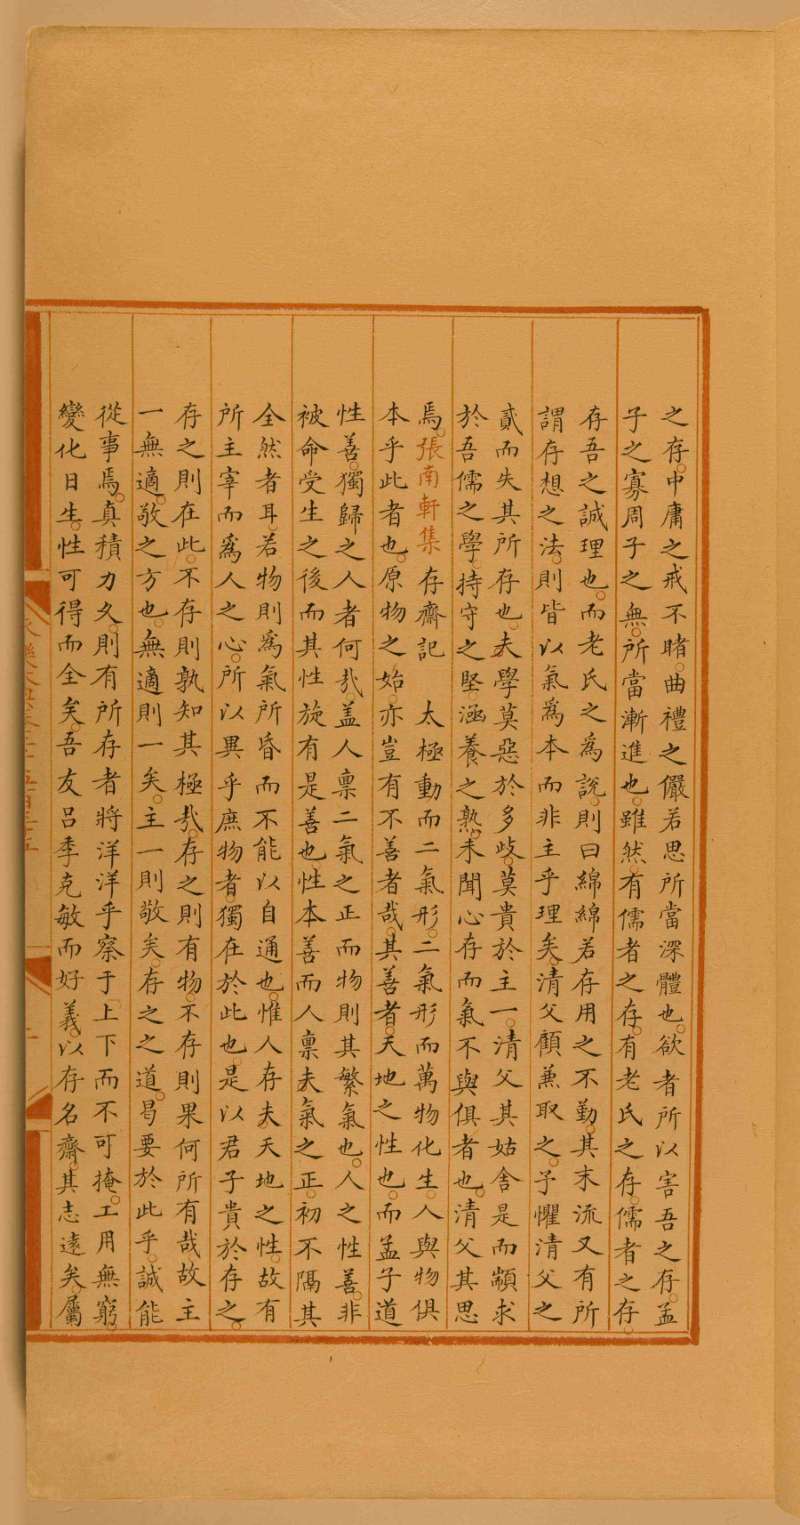 之存。中庸之戒不睹。曲禮之儼若思所當深體也。欲者所以害吾之存。孟
子之寡周子之無。所當漸進也。雖然有儒者之存。有老氏之存。儒者之存。
存吾之誠理也。而老氏之為說。則曰綿綿若存用之不勤。其末流又有所
謂存想之法。則皆以氣為本而非主乎理矣。清父顧兼取之。予懼清父之
貳而失其所存也。夫學莫惡於多歧。莫貴於主一。清父其姑舍是而顓求
於吾儒之學。持守之堅。涵養之熟。未聞心存而氣不與俱者也。清父其思
焉。張南軒集存齋記 太極動而二氣形。二氣形而萬物化生。人與物俱
本乎此者也。原物之始亦豈有不善者哉。其善者。天地之性也。而孟子道
性善。獨歸之人者何哉。盖人禀二氣之正而物則其繁氣也。人之性善。非
被命受生之後而其性旋有是善也。性本善而人禀夫氣之正。初不隔其
全然者耳。若物則為氣所昏而不能以自通也。惟人存夫天地之性。故有
所主宰而為人之心。所以異乎庶物者獨在於此也。是以君子貴於存之。
存之則在此。不存則孰知其極哉。存之則有物。不存則果何所有哉故主
一無適。敬之方也。無適則一矣。主一則敬矣。存之之道。曷要於此乎。誠能
從事焉。真積力久則有所存者將洋洋乎察于上下而不可掩。工用無窮。
變化日生。性可得而全矣。吾友呂季克敏而好義。以存名齋。其志遠矣。屬